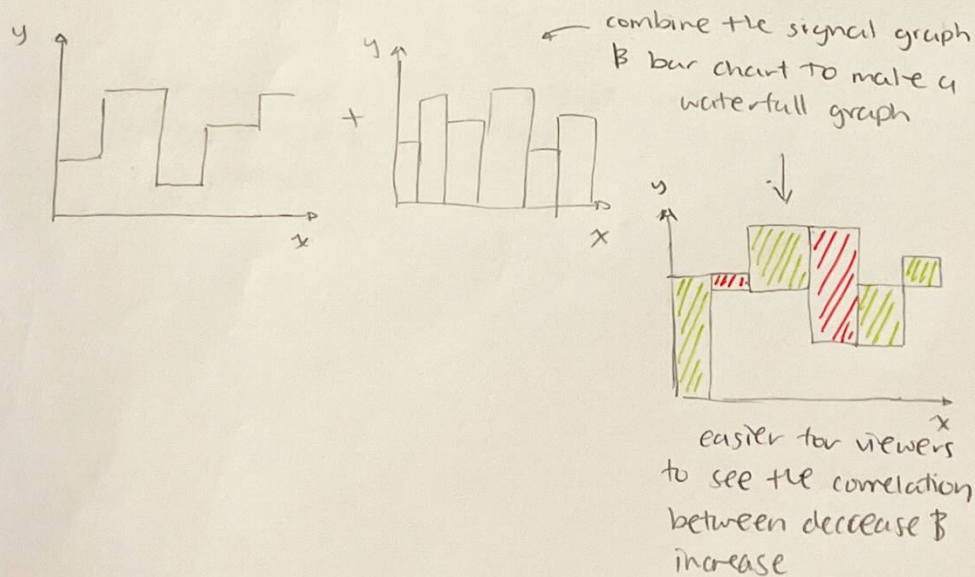 y
x
+
y
x
combine the signal graph
& bar chart to make a
waterfall graph
y
x
easier for viewers
to see the correlation
between decrease &
increase